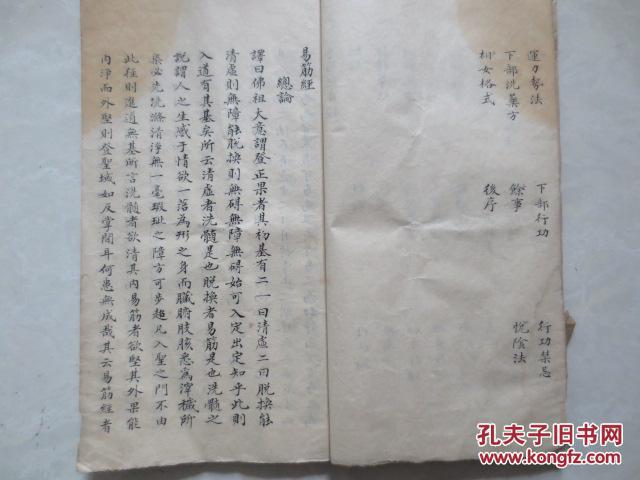 運力势法
下部行功
行功禁忌
下部洗藥方
餘事
脱陰法
後序
易筋經
總論
譯曰佛祖大意謂登正果者其初基有二一曰清虛二曰脱換能
清虛則無障能脱換則無碍無障無碍始可入定出定知乎此則
入道有其基矣所云清虛者洗髓是也脱換者易筋是也洗髓之
説謂人之生感于情欲一落為形之身而臟腑肢骸悉為滓穢所
染必先洗滌清淨無一毫瑕玼之障方可步超凡入聖之門不由
此徑則進道無基所言洗髓者欲清其内易筋者欲堅其外果能
内淨而外堅則登聖域如反掌間耳何患無成哉其云易筋經者
孔夫子旧书网
www.kongfz.com